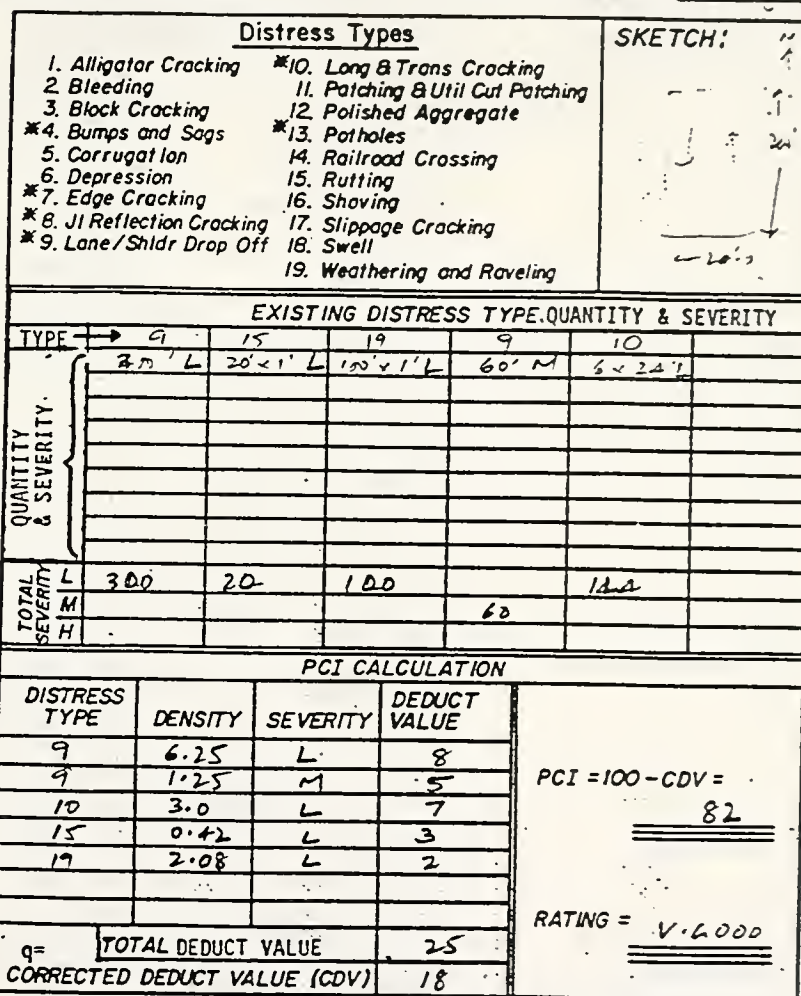 Distress Types
1. Alligator Cracking
2. Bleeding
3. Block Cracking
*4. Bumps and Sags
5. Corrugation
6. Depression
*7. Edge Cracking
*8. Jt Reflection Cracking
*9. Lane/Shldr Drop Off
*10. Long & Trans Cracking
11. Patching & Util Cut Patching
12. Polished Aggregate
*13. Potholes
14. Railroad Crossing
15. Rutting
16. Shoving
17. Slippage Cracking
18. Swell
19. Weathering and Raveling
SKETCH:
EXISTING DISTRESS TYPE.QUANTITY & SEVERITY
TYPE → 9 15 19 9 10
QUANTITY & SEVERITY.
L 20'x1' L 100'x1' L 60' M 6 x 24' L
TOTAL SEVERITY
L 300 20 100 144
M 60
H
PCI CALCULATION
DISTRESS TYPE DENSITY SEVERITY DEDUCT VALUE
9 6.25 L 8
9 1.25 M 5
10 3.0 L 7
15 0.42 L 3
19 2.08 L 2
q= TOTAL DEDUCT VALUE 25
CORRECTED DEDUCT VALUE (CDV) 18
PCI = 100 - CDV =
82
RATING = V.GOOD